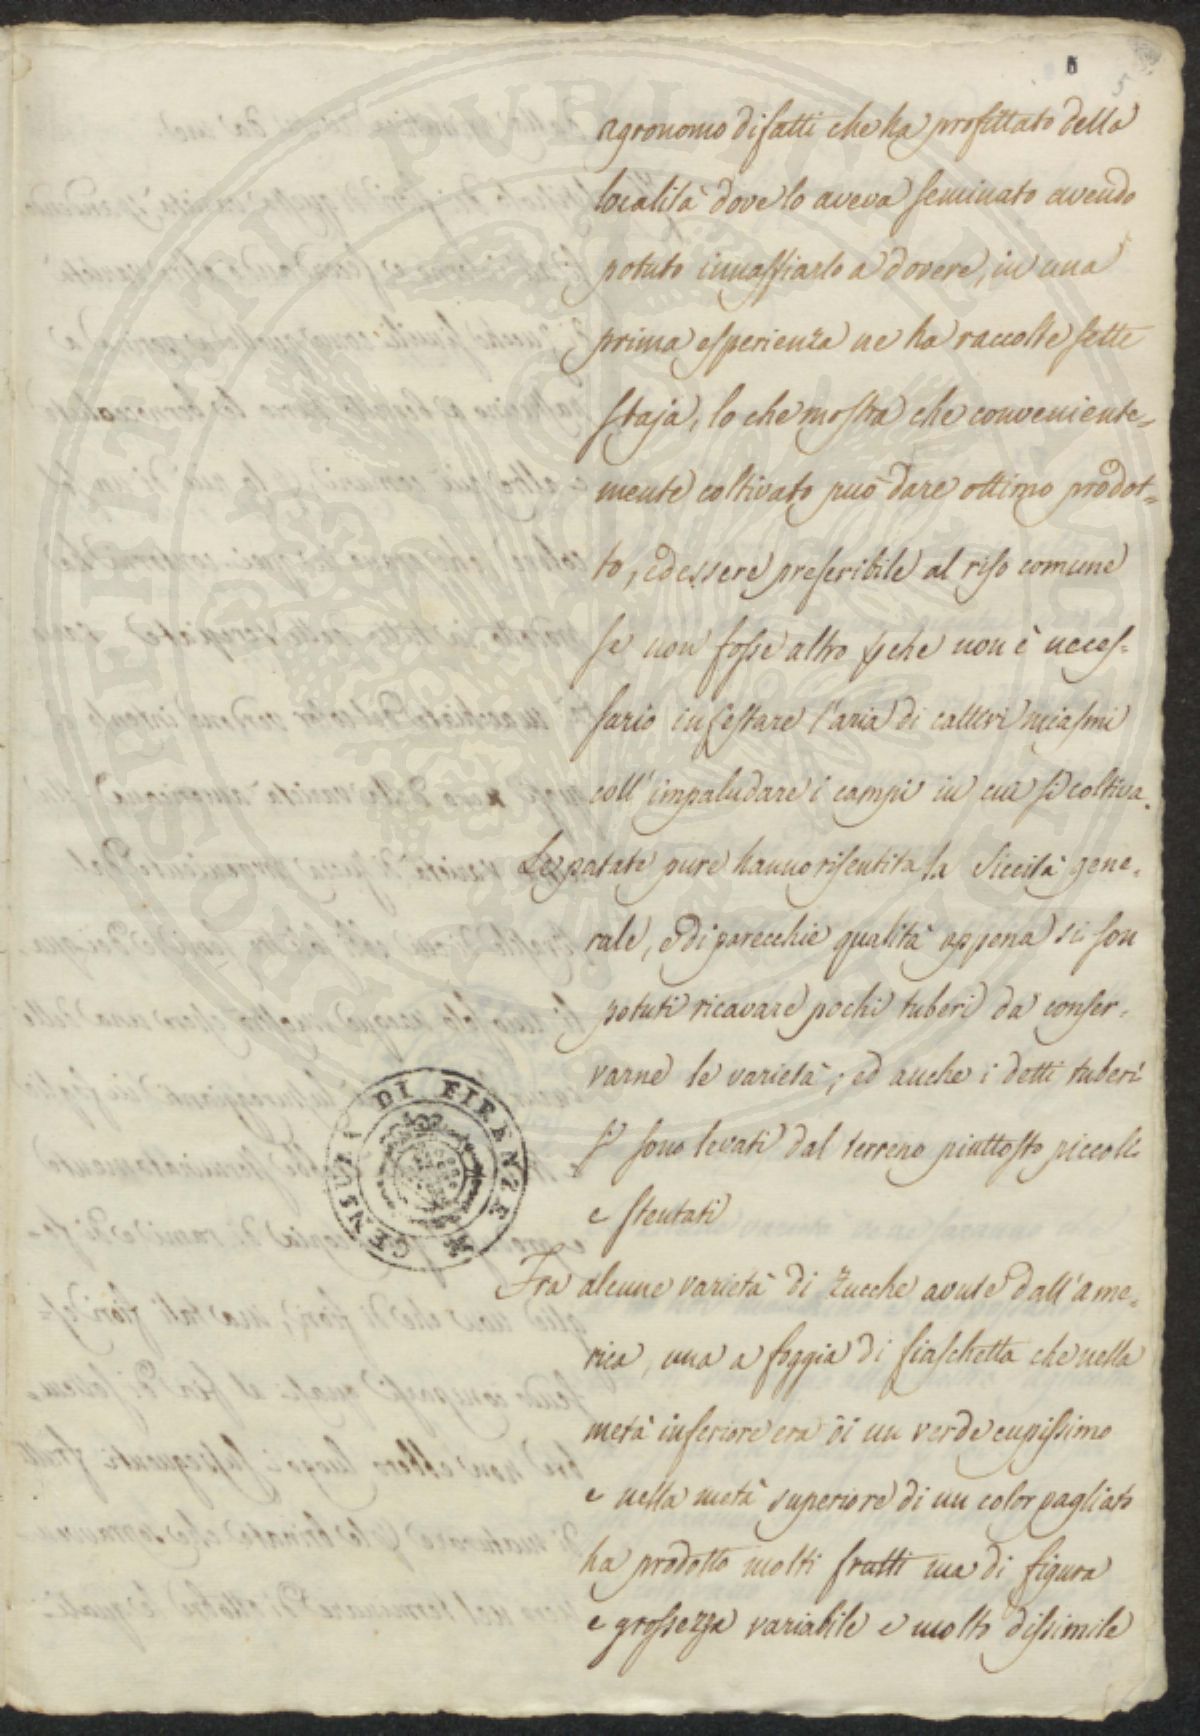 5
agronomo difatti che ha profittato della
località dove lo aveva seminato avendo
potuto innaffiarlo a dovere, in una
prima esperienza ne ha raccolte sette
staja, lo che mostra che conveniente=
mente coltivato può dare ottimo prodot=
to, ed essere preferibile al riso comune
se non fosse altro che non è neces=
sario infestare l'aria di cattivi miasmi
coll'impaludare i campi in cui si coltiva.
Le patate pure hanno risentita la siccità gene=
rale, e di parecchie qualità appena si son
potuti ricavare pochi tuberi da conser=
varne le varietà; ed anche i detti tuberi
si sono levati dal terreno piuttosto piccoli
e stentati
Fra alcune varietà di zucche avute dall'Ame=
rica, una a foggia di fiaschetta che nella
metà inferiore era di un verde cupissimo
e nella metà superiore di un color pagliato
ha prodotto molti frutti ma di figura
e grossezza variabile e molto dissimile
CENSURA DI FIRENZE